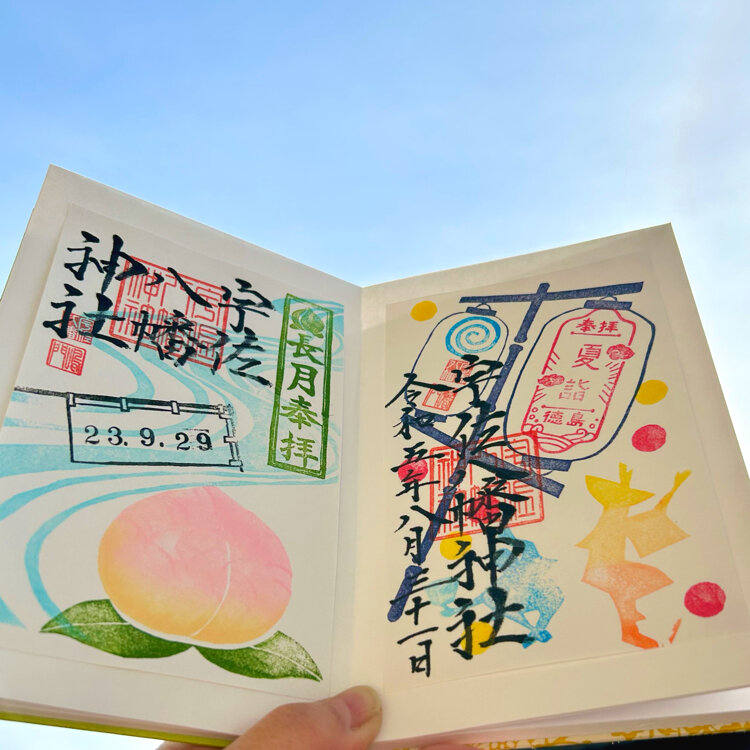 長月奉拝
宇佐
八幡
神社
23.9.29
奉拝
夏
詣
徳島
宇佐八幡神社
令和五年八月三十一日